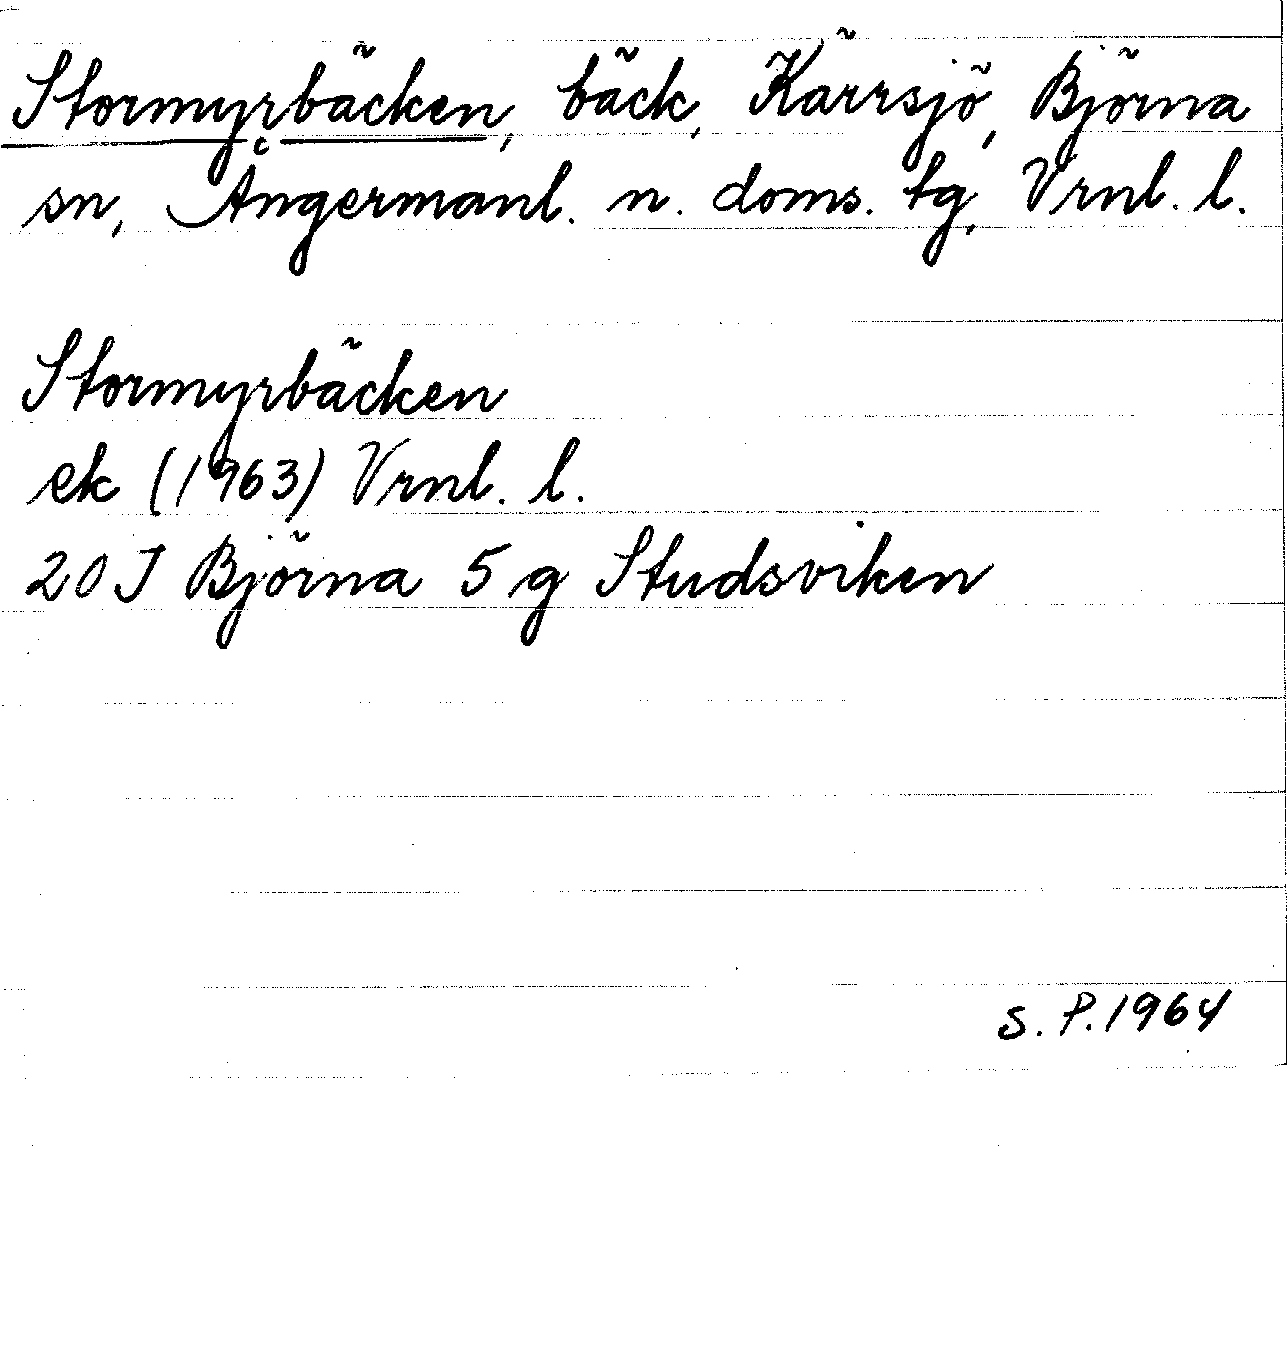 Stormyrbäcken, bäck, Kärrsjö, Björna
sn, Ångermanl. n. doms. tg, Vrnl. l.
Stormyrbäcken
ek (1963) Vrnl. l.
20 J Björna 5 g Studsviken
S. P. 1964